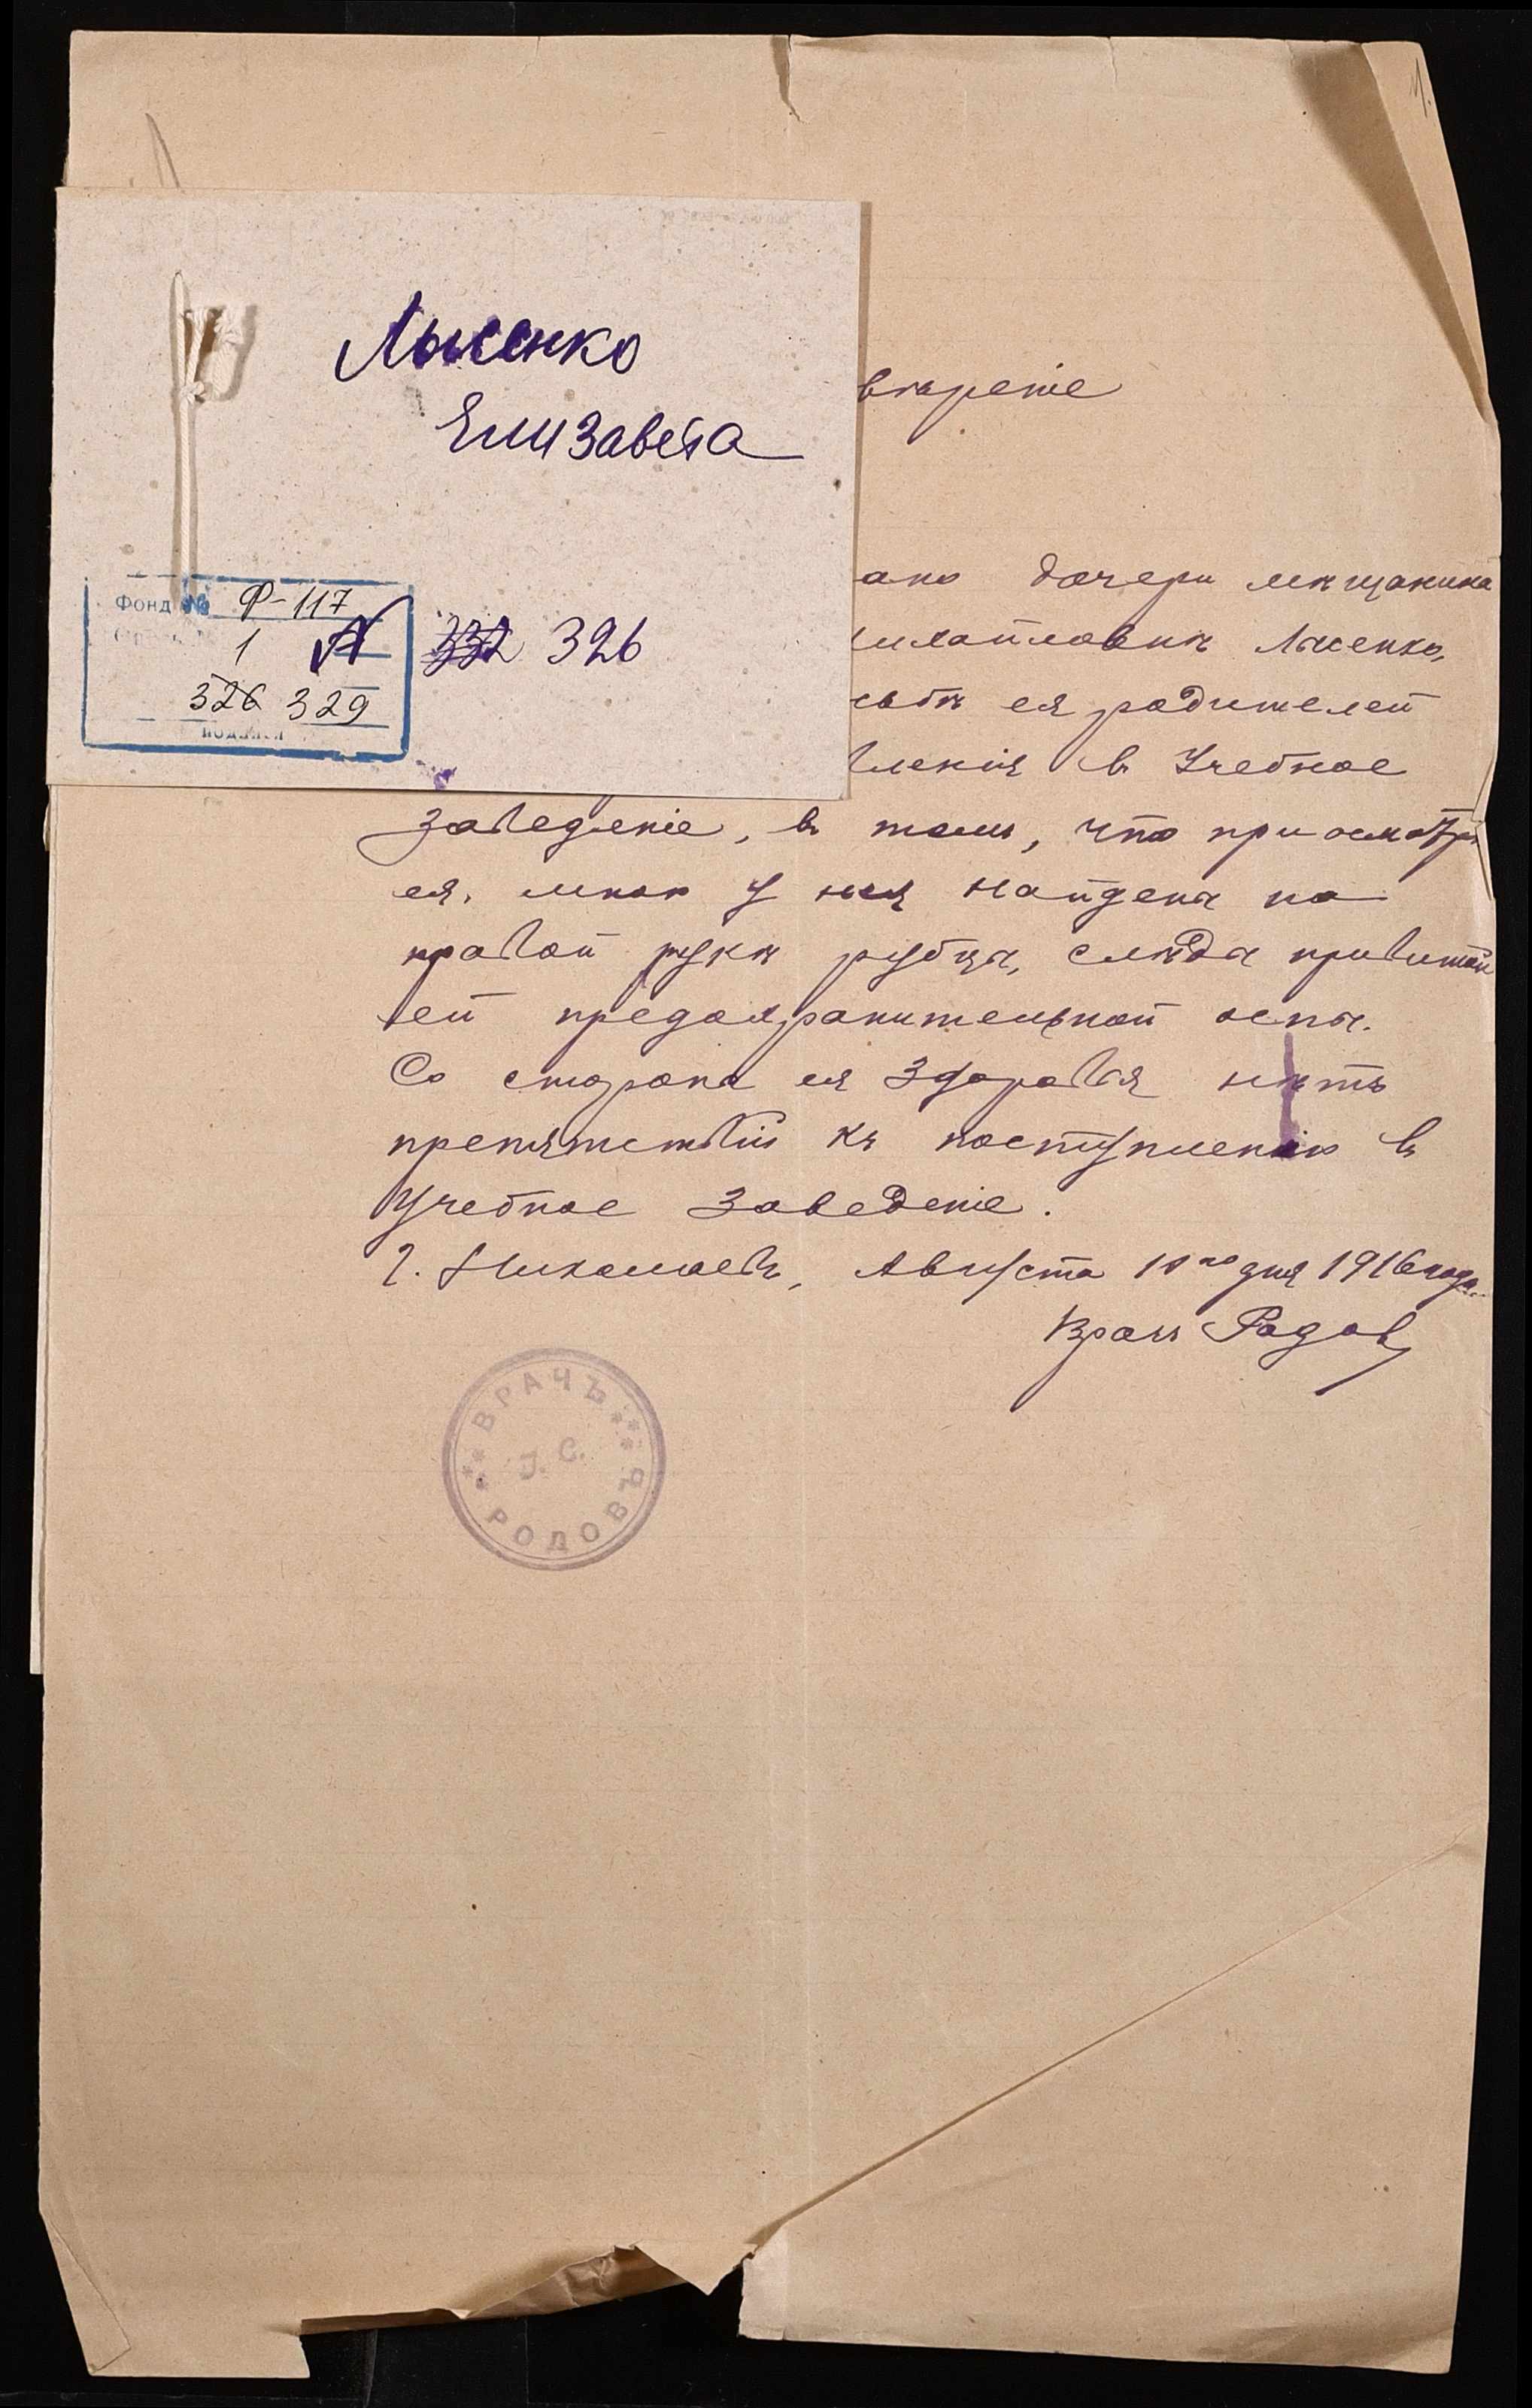 1.
Лысенко
Елизавета
Фонд № Ф-117
1
332 326
326 329
вѣреніе
ано дочери мѣщанина
ихайловнѣ Лысенко,
сьбѣ ея родителей
вленія въ Учебное
Заведеніе, въ томъ, что при осмотрѣ
ея, мною у нея найдены на
правой рукѣ рубцы, слѣды привитой
ей предохранительной оспы.
Со стороны ея здоровья нѣтъ
препятствій къ поступленію въ
Учебное Заведеніе.
Г. Николаевъ, Августа 10го дня 1916 года.
Врачъ Родов
ВРАЧЪ
І. С.
РОДОВЪ